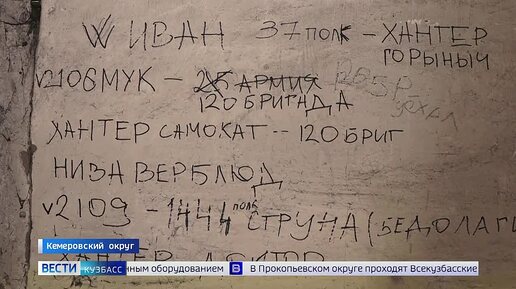 V ИВАН 37 полк - ХАНТЕР
ГОРЫНЫЧ
v2106 МУК - 25 АРМИЯ
120 БРИГАДА
уехал
ХАНТЕР САМОКАТ -- 120 БРИГ
НИВА ВЕРБЛЮД
v2109 - 1444 полк СТРУНА (БЕДОЛАГИ
ХАНТЕР
Кемеровский округ
ВЕСТИ КУЗБАСС нным оборудованием В Прокопьевском округе проходят Всекузбасские